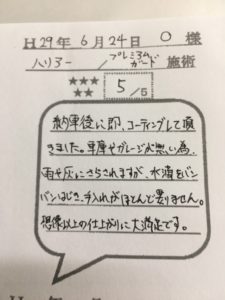 H29年 6月24日 O 様
ハリアー / プレミアムガード 施術
★★★★★ 5/5
納車後に即、コーティングして頂
きました。車庫やガレージが無い為、
雨や灰にさらされますが、水滴をバン
バンはじき、手入れがほとんど要りません。
想像以上の仕上がりに大満足です。